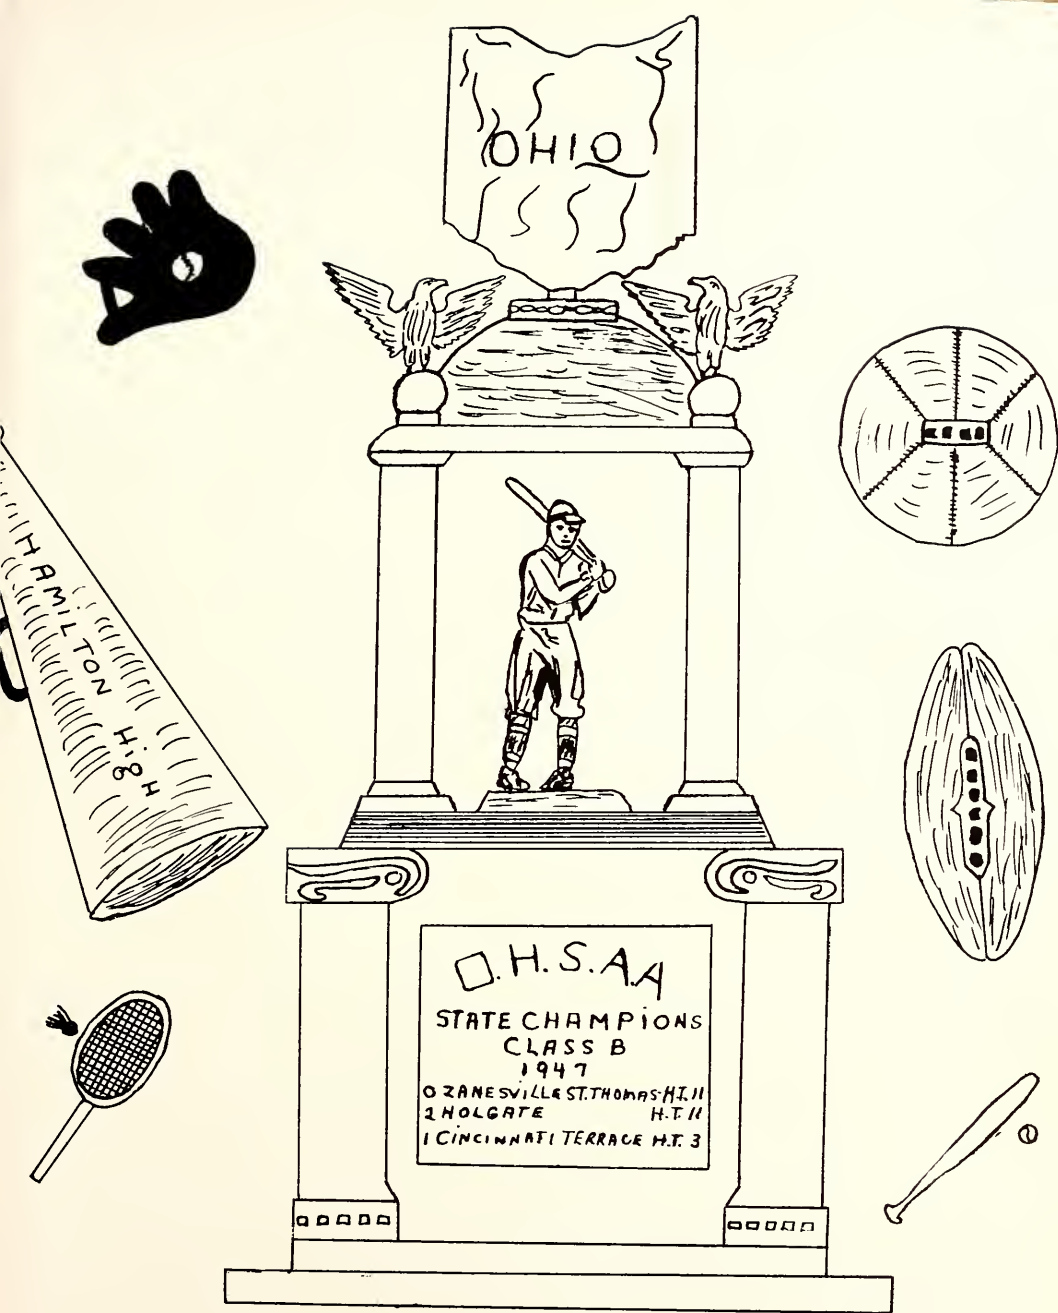 OHIO
HAMILTON HigH
O.H.S.A.A
STATE CHAMPiONS
CLASS B
1947
0 ZANESViLLE ST.THOMAS-H.T. 11
2 HOLGATE H.T. 11
1 CiNCiNNATI TERRACE H.T. 3